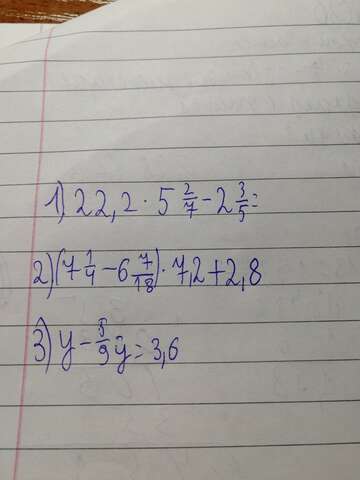 1) 22,2 · 5 2/7 - 2 3/5 =
2) (7 1/4 - 6 7/18) · 7,2 + 2,8
3) y - 5/9 y = 3,6